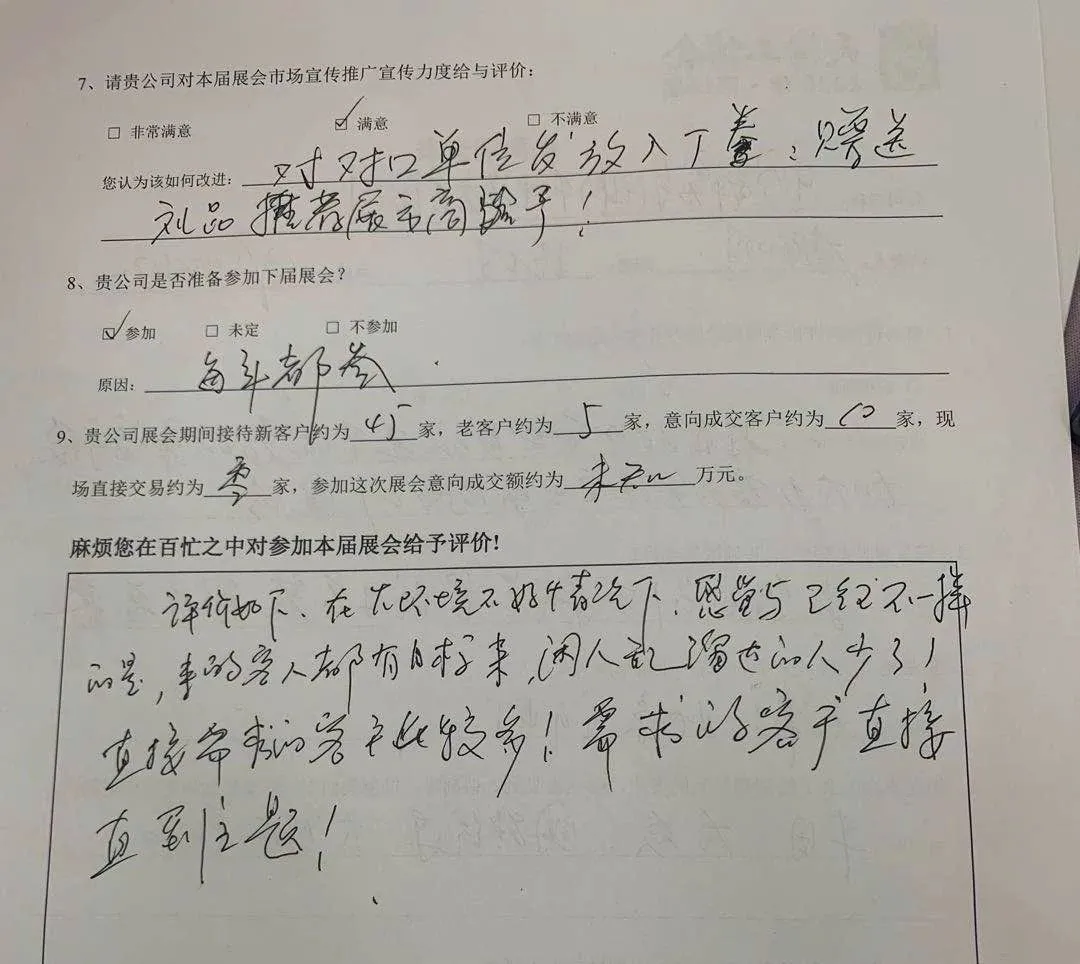 7、请贵公司对本届展会市场宣传推广宣传力度给与评价：
□ 非常满意 ☑ 满意 □ 不满意
您认为该如何改进：对对口单位发放入 赠送
礼品 推荐展 商 予！
8、贵公司是否准备参加下届展会？
☑ 参加 □ 未定 □ 不参加
原因：每年都参
9、贵公司展会期间接待新客户约为 45 家，老客户约为 5 家，意向成交客户约为 10 家，现
场直接交易约为 零 家，参加这次展会意向成交额约为 未知 万元。
麻烦您在百忙之中对参加本届展会给予评价!
评价如下、在大环境不好情况下，感觉与已往不一样
的是，来的客人都有目标来，闲人乱溜达的人少了！
直接需求的客户比较多！需求的客户直接
直到主题！